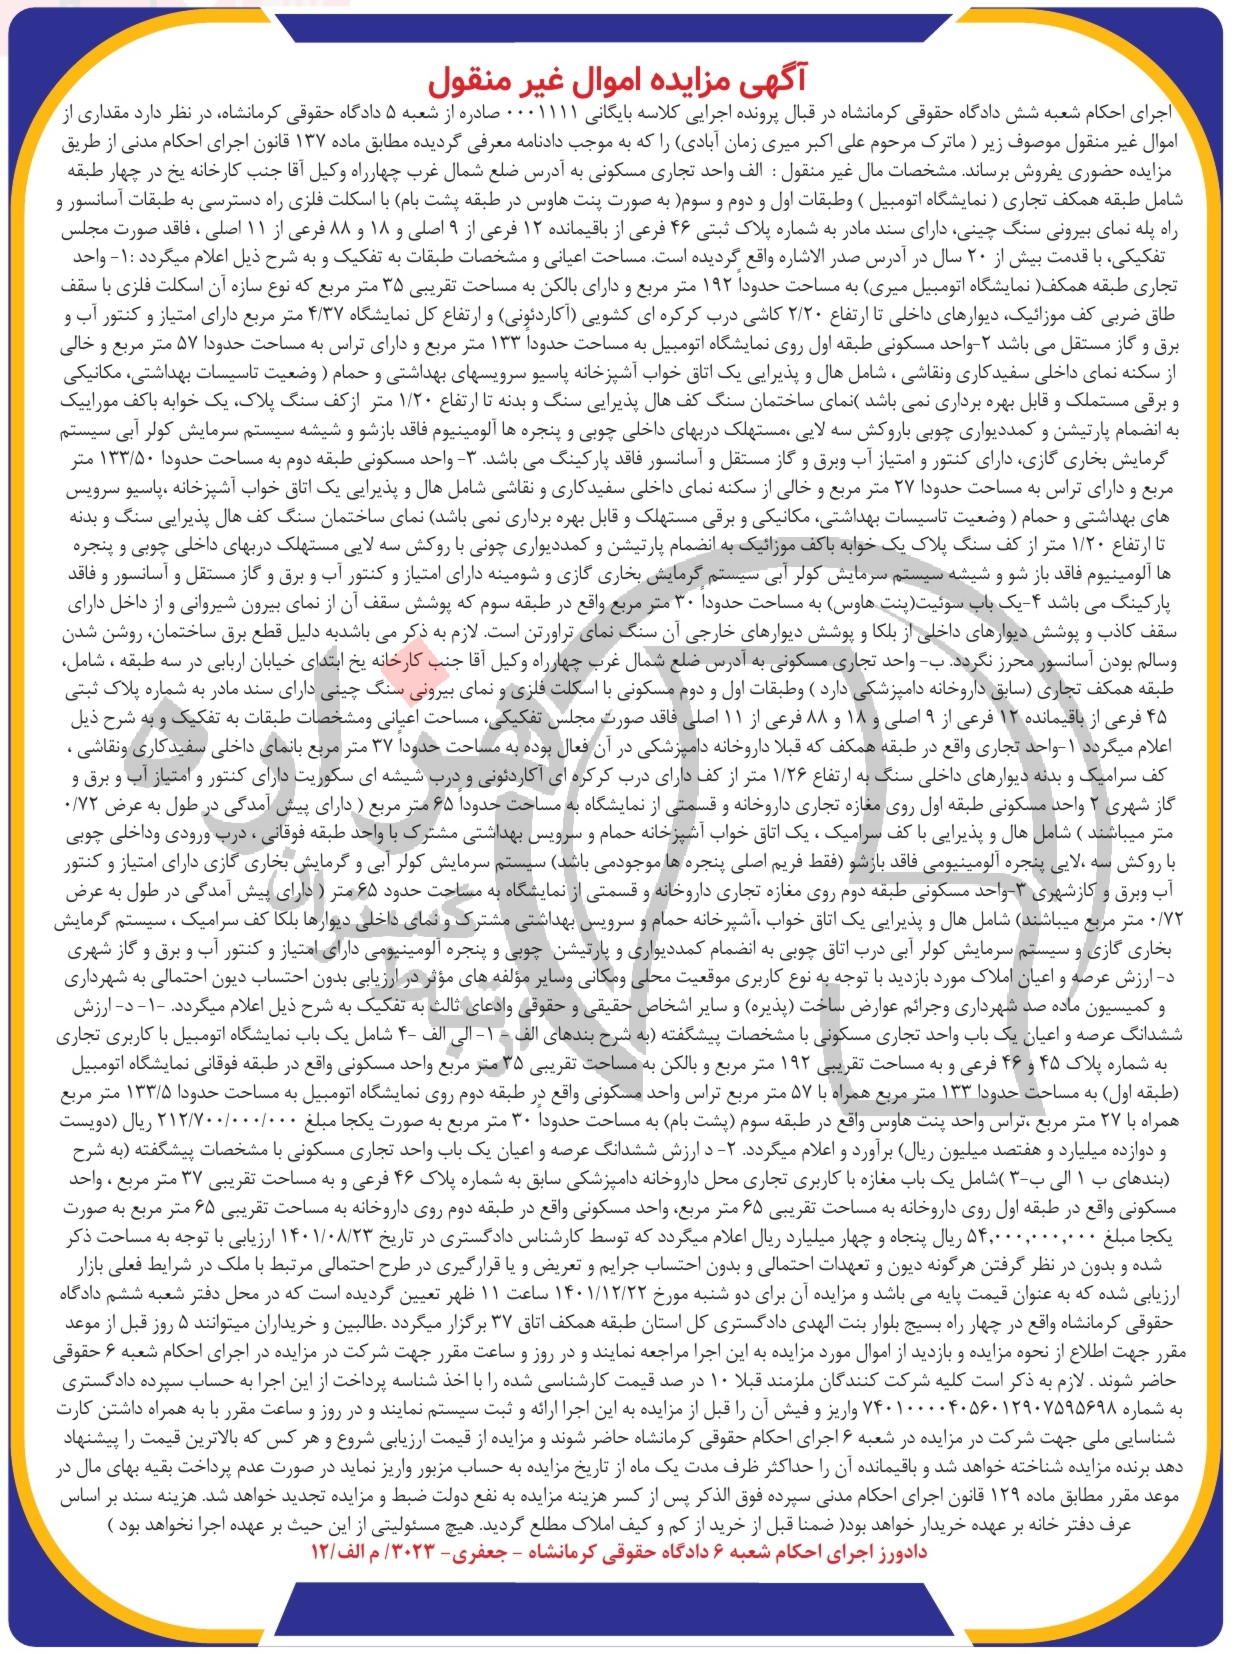 آگهی مزایده اموال غیر منقول
اجرای احکام شعبه شش دادگاه حقوقی کرمانشاه در قبال پرونده اجرایی کلاسه بایگانی ۰۰۰۱۱۱۱ صادره از شعبه ۵ دادگاه حقوقی کرمانشاه، در نظر دارد مقداری از
اموال غیر منقول موصوف زیر ( ماترک مرحوم علی اکبر میری زمان آبادی) را که به موجب دادنامه معرفی گردیده مطابق ماده ۱۳۷ قانون اجرای احکام مدنی از طریق
مزایده حضوری یفروش برساند. مشخصات مال غیر منقول : الف واحد تجاری مسکونی به آدرس ضلع شمال غرب چهارراه وکیل آقا جنب کارخانه یخ در چهار طبقه
شامل طبقه همکف تجاری ( نمایشگاه اتومبیل ) وطبقات اول و دوم و سوم( به صورت پنت هاوس در طبقه پشت بام) با اسکلت فلزی راه دسترسی به طبقات آسانسور و
راه پله نمای بیرونی سنگ چینی، دارای سند مادر به شماره پلاک ثبتی ۴۶ فرعی از باقیمانده ۱۲ فرعی از ۹ اصلی و ۱۸ و ۸۸ فرعی از ۱۱ اصلی ، فاقد صورت مجلس
تفکیکی، با قدمت بیش از ۲۰ سال در آدرس صدر الاشاره واقع گردیده است. مساحت اعیانی و مشخصات طبقات به تفکیک و به شرح ذیل اعلام میگردد :۱- واحد
تجاری طبقه همکف( نمایشگاه اتومبیل میری) به مساحت حدوداً ۱۹۲ متر مربع و دارای بالکن به مساحت تقریبی ۳۵ متر مربع که نوع سازه آن اسکلت فلزی با سقف
طاق ضربی کف موزائیک، دیوارهای داخلی تا ارتفاع ۲/۲۰ کاشی درب کرکره ای کشویی (آکاردئونی) و ارتفاع کل نمایشگاه ۴/۳۷ متر مربع دارای امتیاز و کنتور آب و
برق و گاز مستقل می باشد ۲-واحد مسکونی طبقه اول روی نمایشگاه اتومبیل به مساحت حدوداً ۱۳۳ متر مربع و دارای تراس به مساحت حدودا ۵۷ متر مربع و خالی
از سکنه نمای داخلی سفیدکاری ونقاشی ، شامل هال و پذیرایی یک اتاق خواب آشپزخانه پاسیو سرویسهای بهداشتی و حمام ( وضعیت تاسیسات بهداشتی، مکانیکی
و برقی مستملک و قابل بهره برداری نمی باشد )نمای ساختمان سنگ کف هال پذیرایی سنگ و بدنه تا ارتفاع ۱/۲۰ متر ازکف سنگ پلاک، یک خوابه باکف موراییک
به انضمام پارتیشن و کمددیواری چوبی باروکش سه لایی ،مستهلک دربهای داخلی چوبی و پنجره ها آلومینیوم فاقد بازشو و شیشه سیستم سرمایش کولر آبی سیستم
گرمایش بخاری گازی، دارای کنتور و امتیاز آب وبرق و گاز مستقل و آسانسور فاقد پارکینگ می باشد. ۳- واحد مسکونی طبقه دوم به مساحت حدودا ۱۳۳/۵۰ متر
مربع و دارای تراس به مساحت حدودا ۲۷ متر مربع و خالی از سکنه نمای داخلی سفیدکاری و نقاشی شامل هال و پذیرایی یک اتاق خواب آشپزخانه ،پاسیو سرویس
های بهداشتی و حمام ( وضعیت تاسیسات بهداشتی، مکانیکی و برقی مستهلک و قابل بهره برداری نمی باشد) نمای ساختمان سنگ کف هال پذیرایی سنگ و بدنه
تا ارتفاع ۱/۲۰ متر از کف سنگ پلاک یک خوابه باکف موزائیک به انضمام پارتیشن و کمددیواری چونی با روکش سه لایی مستهلک دربهای داخلی چوبی و پنجره
ها آلومینیوم فاقد باز شو و شیشه سیستم سرمایش کولر آبی سیستم گرمایش بخاری گازی و شومینه دارای امتیاز و کنتور آب و برق و گاز مستقل و آسانسور و فاقد
پارکینگ می باشد ۴-یک باب سوئیت(پنت هاوس) به مساحت حدوداً ۳۰ متر مربع واقع در طبقه سوم که پوشش سقف آن از نمای بیرون شیروانی و از داخل دارای
سقف کاذب و پوشش دیوارهای داخلی از بلکا و پوشش دیوارهای خارجی آن سنگ نمای تراورتن است. لازم به ذکر می باشدبه دلیل قطع برق ساختمان، روشن شدن
وسالم بودن آسانسور محرز نگردد. ب- واحد تجاری مسکونی به آدرس ضلع شمال غرب چهارراه وکیل آقا جنب کارخانه یخ ابتدای خیابان اربابی در سه طبقه ، شامل،
طبقه همکف تجاری (سابق داروخانه دامپزشکی دارد ) وطبقات اول و دوم مسکونی با اسکلت فلزی و نمای بیرونی سنگ چینی دارای سند مادر به شماره پلاک ثبتی
۴۵ فرعی از باقیمانده ۱۲ فرعی از ۹ اصلی و ۱۸ و ۸۸ فرعی از ۱۱ اصلی فاقد صورت مجلس تفکیکی، مساحت اعیانی ومشخصات طبقات به تفکیک و به شرح ذیل
اعلام میگردد ۱-واحد تجاری واقع در طبقه همکف که قبلا داروخانه دامپزشکی در آن فعال بوده به مساحت حدوداً ۳۷ متر مربع بانمای داخلی سفیدکاری ونقاشی ،
کف سرامیک و بدنه دیوارهای داخلی سنگ به ارتفاع ۱/۲۶ متر از کف دارای درب کرکره ای آکاردئونی و درب شیشه ای سکوریت دارای کنتور و امتیاز آب و برق و
گاز شهری ۲ واحد مسکونی طبقه اول روی مغازه تجاری داروخانه و قسمتی از نمایشگاه به مساحت حدوداً ۶۵ متر مربع ( دارای پیش آمدگی در طول به عرض ۰/۷۲
متر میباشند ) شامل هال و پذیرایی با کف سرامیک ، یک اتاق خواب آشپزخانه حمام و سرویس بهداشتی مشترک با واحد طبقه فوقانی ، درب ورودی وداخلی چوبی
با روکش سه ،لایی پنجره آلومینیومی فاقد بازشو (فقط فریم اصلی پنجره ها موجودمی باشد) سیستم سرمایش کولر آبی و گرمایش بخاری گازی دارای امتیاز و کنتور
آب وبرق و کازشهری ۳-واحد مسکونی طبقه دوم روی مغازه تجاری داروخانه و قسمتی از نمایشگاه به مساحت حدود ۶۵ متر ( دارای پیش آمدگی در طول به عرض
۰/۷۲ متر مربع میباشند) شامل هال و پذیرایی یک اتاق خواب ،آشپرخانه حمام و سرویس بهداشتی مشترک و نمای داخلی دیوارها بلکا کف سرامیک ، سیستم گرمایش
بخاری گازی و سیستم سرمایش کولر آبی درب اتاق چوبی به انضمام کمددیواری و پارتیشن چوبی و پنجره آلومینیومی دارای امتیاز و کنتور آب و برق و گاز شهری
د- ارزش عرصه و اعیان املاک مورد بازدید با توجه به نوع کاربری موقعیت محلی ومکانی وسایر مؤلفه های مؤثر در ارزیابی بدون احتساب دیون احتمالی به شهرداری
و کمیسیون ماده صد شهرداری وجرائم عوارض ساخت (پذیره) و سایر اشخاص حقیقی و حقوقی وادعای ثالث به تفکیک به شرح ذیل اعلام میگردد. -۱- د- ارزش
ششدانگ عرصه و اعیان یک باب واحد تجاری مسکونی با مشخصات پیشگفته (به شرح بندهای الف - ۱- الی الف -۴ شامل یک باب نمایشگاه اتومبیل با کاربری تجاری
به شماره پلاک ۴۵ و ۴۶ فرعی و به مساحت تقریبی ۱۹۲ متر مربع و بالکن به مساحت تقریبی ۳۵ متر مربع واحد مسکونی واقع در طبقه فوقانی نمایشگاه اتومبیل
(طبقه اول) به مساحت حدودا ۱۳۳ متر مربع همراه با ۵۷ متر مربع تراس واحد مسکونی واقع در طبقه دوم روی نمایشگاه اتومبیل به مساحت حدودا ۱۳۳/۵ متر مربع
همراه با ۲۷ متر مربع ،تراس واحد پنت هاوس واقع در طبقه سوم (پشت بام) به مساحت حدوداً ۳۰ متر مربع به صورت یکجا مبلغ ۲۱۲/۷۰۰/۰۰۰/۰۰۰ ریال (دویست
و دوازده میلیارد و هفتصد میلیون ریال) برآورد و اعلام میگردد. ۲- د ارزش ششدانگ عرصه و اعیان یک باب واحد تجاری مسکونی با مشخصات پیشگفته (به شرح
(بندهای ب ۱ الی ب-۳ )شامل یک باب مغازه با کاربری تجاری محل داروخانه دامپزشکی سابق به شماره پلاک ۴۶ فرعی و به مساحت تقریبی ۳۷ متر مربع ، واحد
مسکونی واقع در طبقه اول روی داروخانه به مساحت تقریبی ۶۵ متر مربع، واحد مسکونی واقع در طبقه دوم روی داروخانه به مساحت تقریبی ۶۵ متر مربع به صورت
یکجا مبلغ ۵۴,۰۰۰,۰۰۰,۰۰۰ ریال پنجاه و چهار میلیارد ریال اعلام میگردد که توسط کارشناس دادگستری در تاریخ ۱۴۰۱/۰۸/۲۳ ارزیابی با توجه به مساحت ذکر
شده و بدون در نظر گرفتن هرگونه دیون و تعهدات احتمالی و بدون احتساب جرایم و تعریض و یا قرارگیری در طرح احتمالی مرتبط با ملک در شرایط فعلی بازار
ارزیابی شده که به عنوان قیمت پایه می باشد و مزایده آن برای دو شنبه مورخ ۱۴۰۱/۱۲/۲۲ ساعت ۱۱ ظهر تعیین گردیده است که در محل دفتر شعبه ششم دادگاه
حقوقی کرمانشاه واقع در چهار راه بسیج بلوار بنت الهدی دادگستری کل استان طبقه همکف اتاق ۳۷ برگزار میگردد .طالبین و خریداران میتوانند ۵ روز قبل از موعد
مقرر جهت اطلاع از نحوه مزایده و بازدید از اموال مورد مزایده به این اجرا مراجعه نمایند و در روز و ساعت مقرر جهت شرکت در مزایده در اجرای احکام شعبه ۶ حقوقی
حاضر شوند . لازم به ذکر است کلیه شرکت کنندگان ملزمند قبلا ۱۰ در صد قیمت کارشناسی شده را با اخذ شناسه پرداخت از این اجرا به حساب سپرده دادگستری
به شماره ۷۴۰۱۰۰۰۰۴۰۵۶۰۱۲۹۰۷۵۹۵۶۹۸ واریز و فیش آن را قبل از مزایده به این اجرا ارائه و ثبت سیستم نمایند و در روز و ساعت مقرر با به همراه داشتن کارت
شناسایی ملی جهت شرکت در مزایده در شعبه ۶ اجرای احکام حقوقی کرمانشاه حاضر شوند و مزایده از قیمت ارزیابی شروع و هر کس که بالاترین قیمت را پیشنهاد
دهد برنده مزایده شناخته خواهد شد و باقیمانده آن را حداکثر ظرف مدت یک ماه از تاریخ مزایده به حساب مزبور واریز نماید در صورت عدم پرداخت بقیه بهای مال در
موعد مقرر مطابق ماده ۱۲۹ قانون اجرای احکام مدنی سپرده فوق الذکر پس از کسر هزینه مزایده به نفع دولت ضبط و مزایده تجدید خواهد شد. هزینه سند بر اساس
عرف دفتر خانه بر عهده خریدار خواهد بود( ضمنا قبل از خرید از کم و کیف املاک مطلع گردید. هیچ مسئولیتی از این حیث بر عهده اجرا نخواهد بود )
دادورز اجرای احکام شعبه ۶ دادگاه حقوقی کرمانشاه - جعفری- ۳۰۲۳/ م الف/۱۲
هزاره